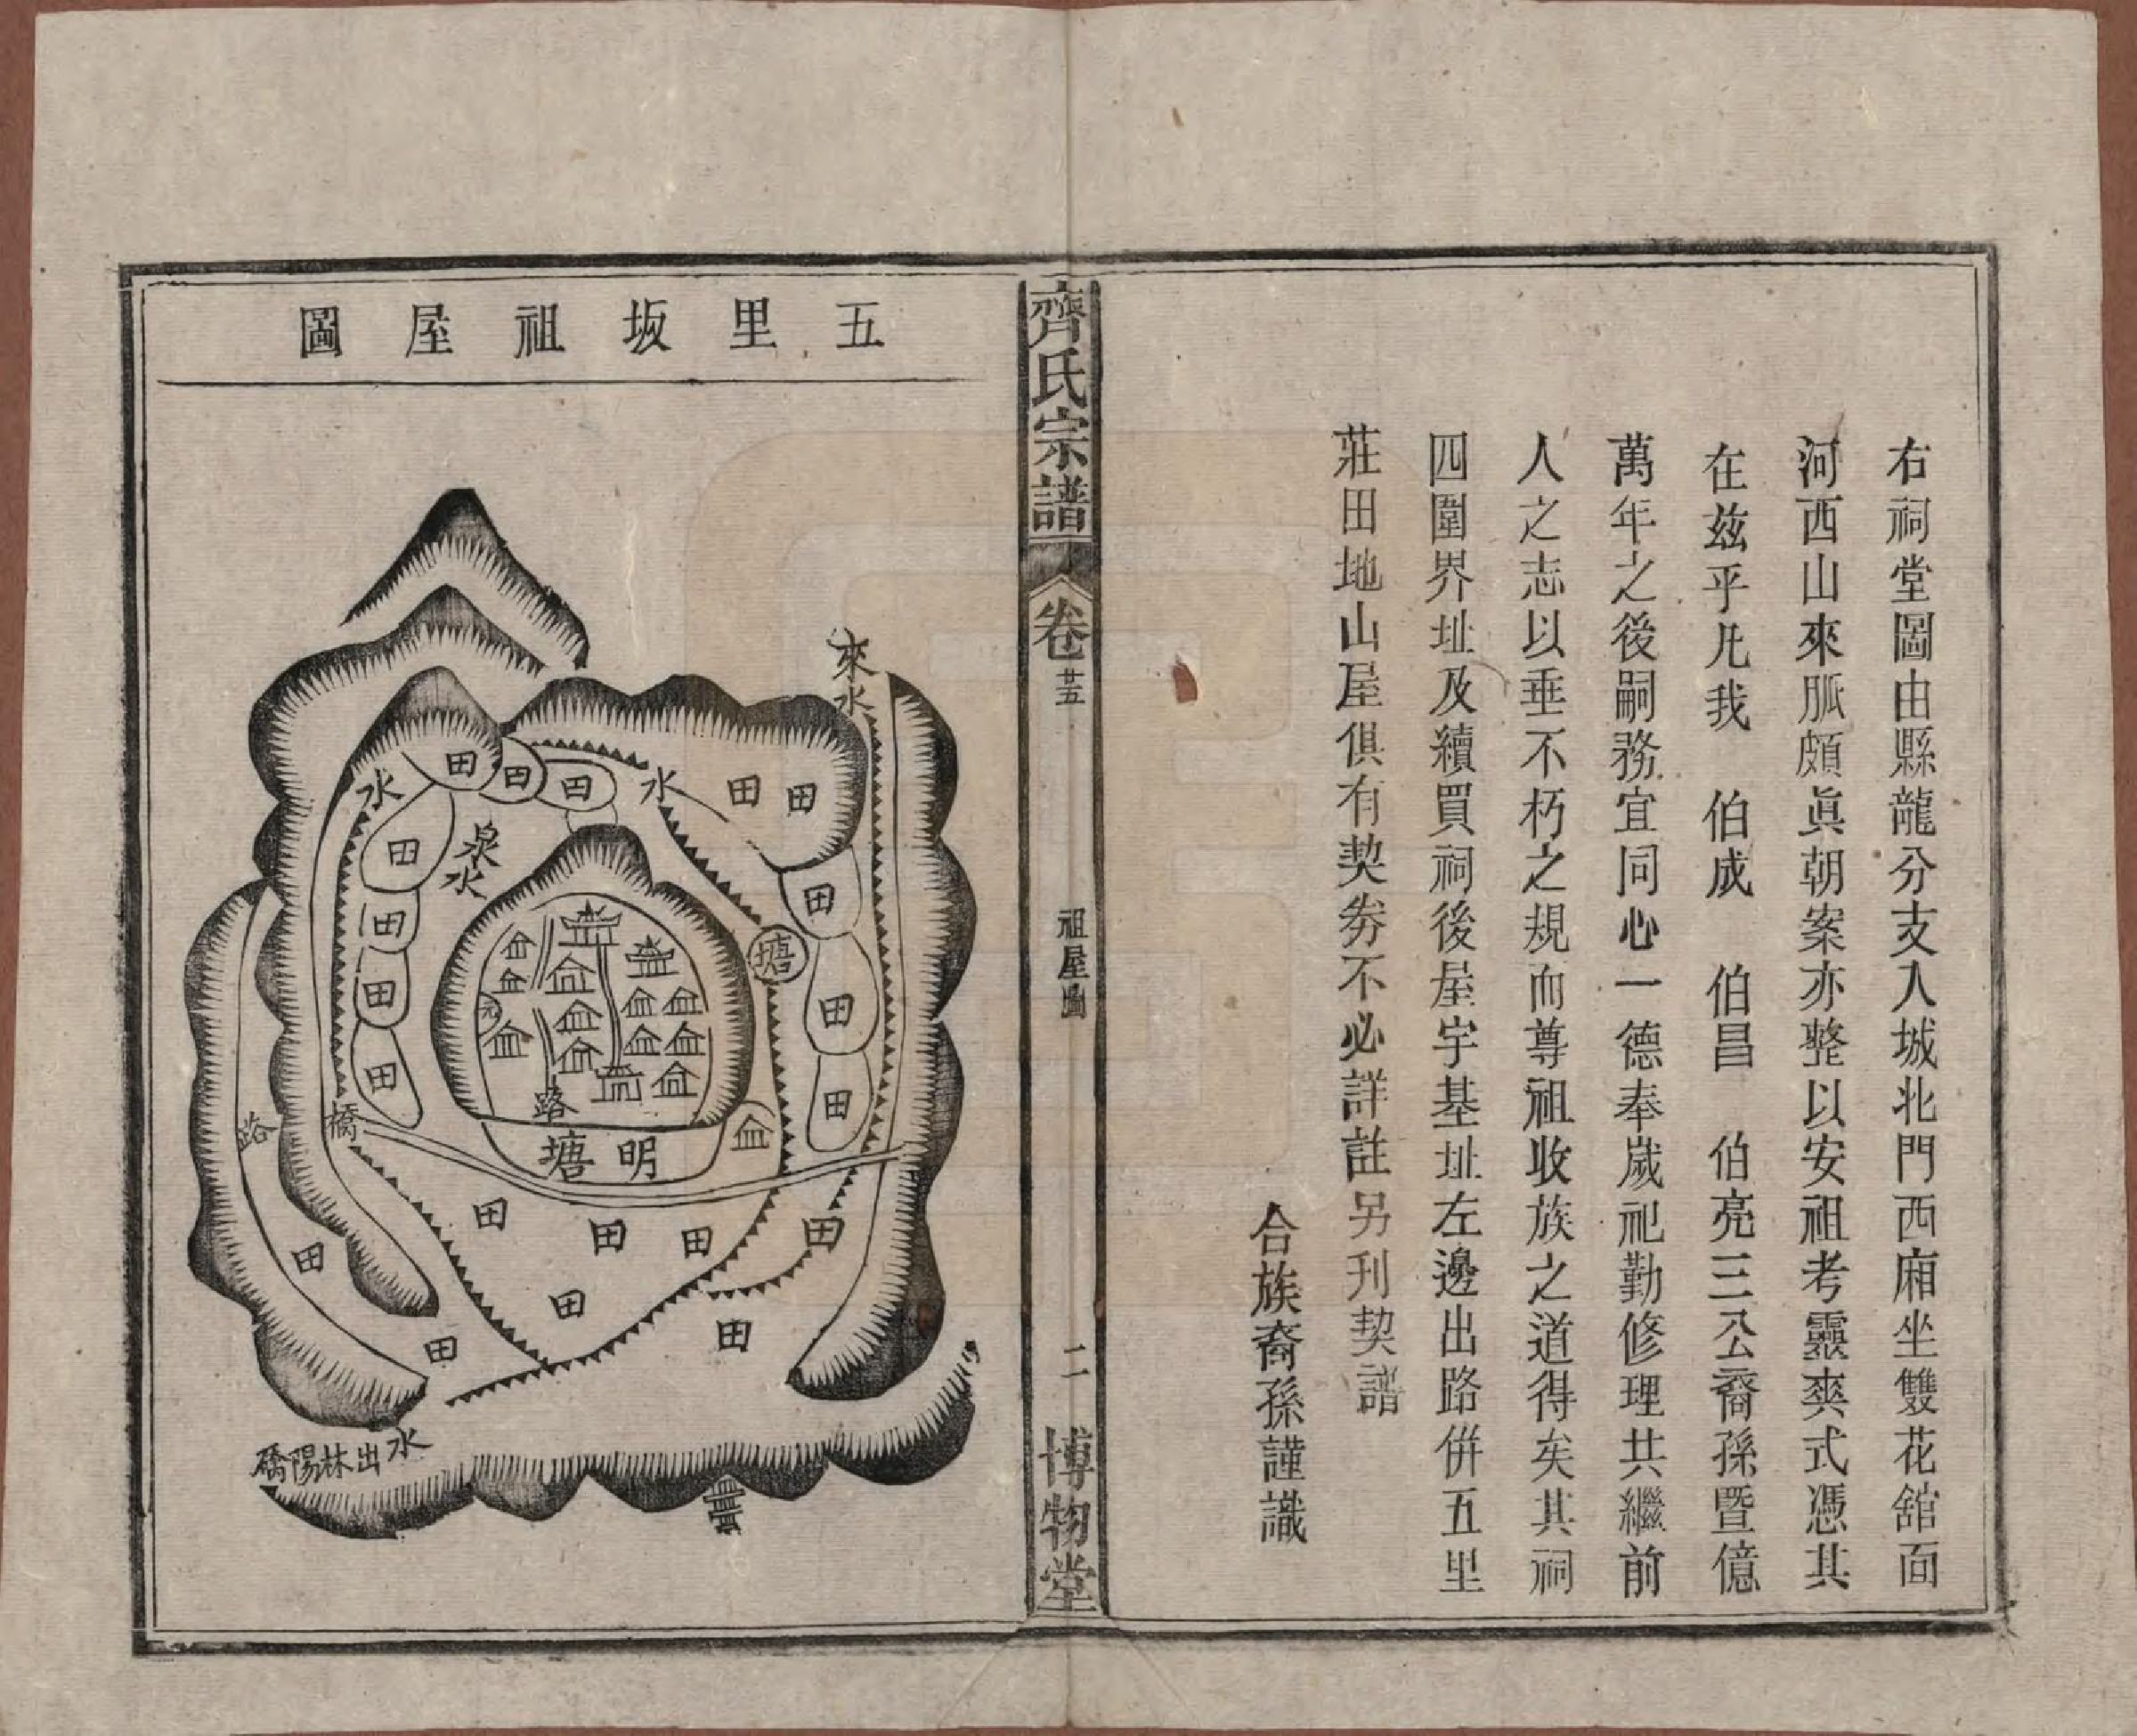 右祠堂圖由縣龍分支入城北門西廂坐雙花舘面
河西山來脈頗眞朝案亦整以安祖考靈爽式憑其
在兹乎凡我　伯成　伯昌　伯亮三公裔孫暨億
萬年之後嗣務宜同心一德奉歲祀勤修理共繼前
人之志以垂不朽之規而尊祖收族之道得矣其祠
四圍界址及續買祠後屋宇基址左邊出路併五里
莊田地山屋俱有契券不必詳註另刋契譜
合族裔孫謹識
齊氏宗譜
卷廿五
祖屋圖
二
博物堂
五里坂祖屋圖
來水
水
水
泉水
田
田
田
田
田
田
田
田
田
田
田
田
塘
路
明塘
橋
路
田
田
田
田
田
田
田
田
水
出林陽橋